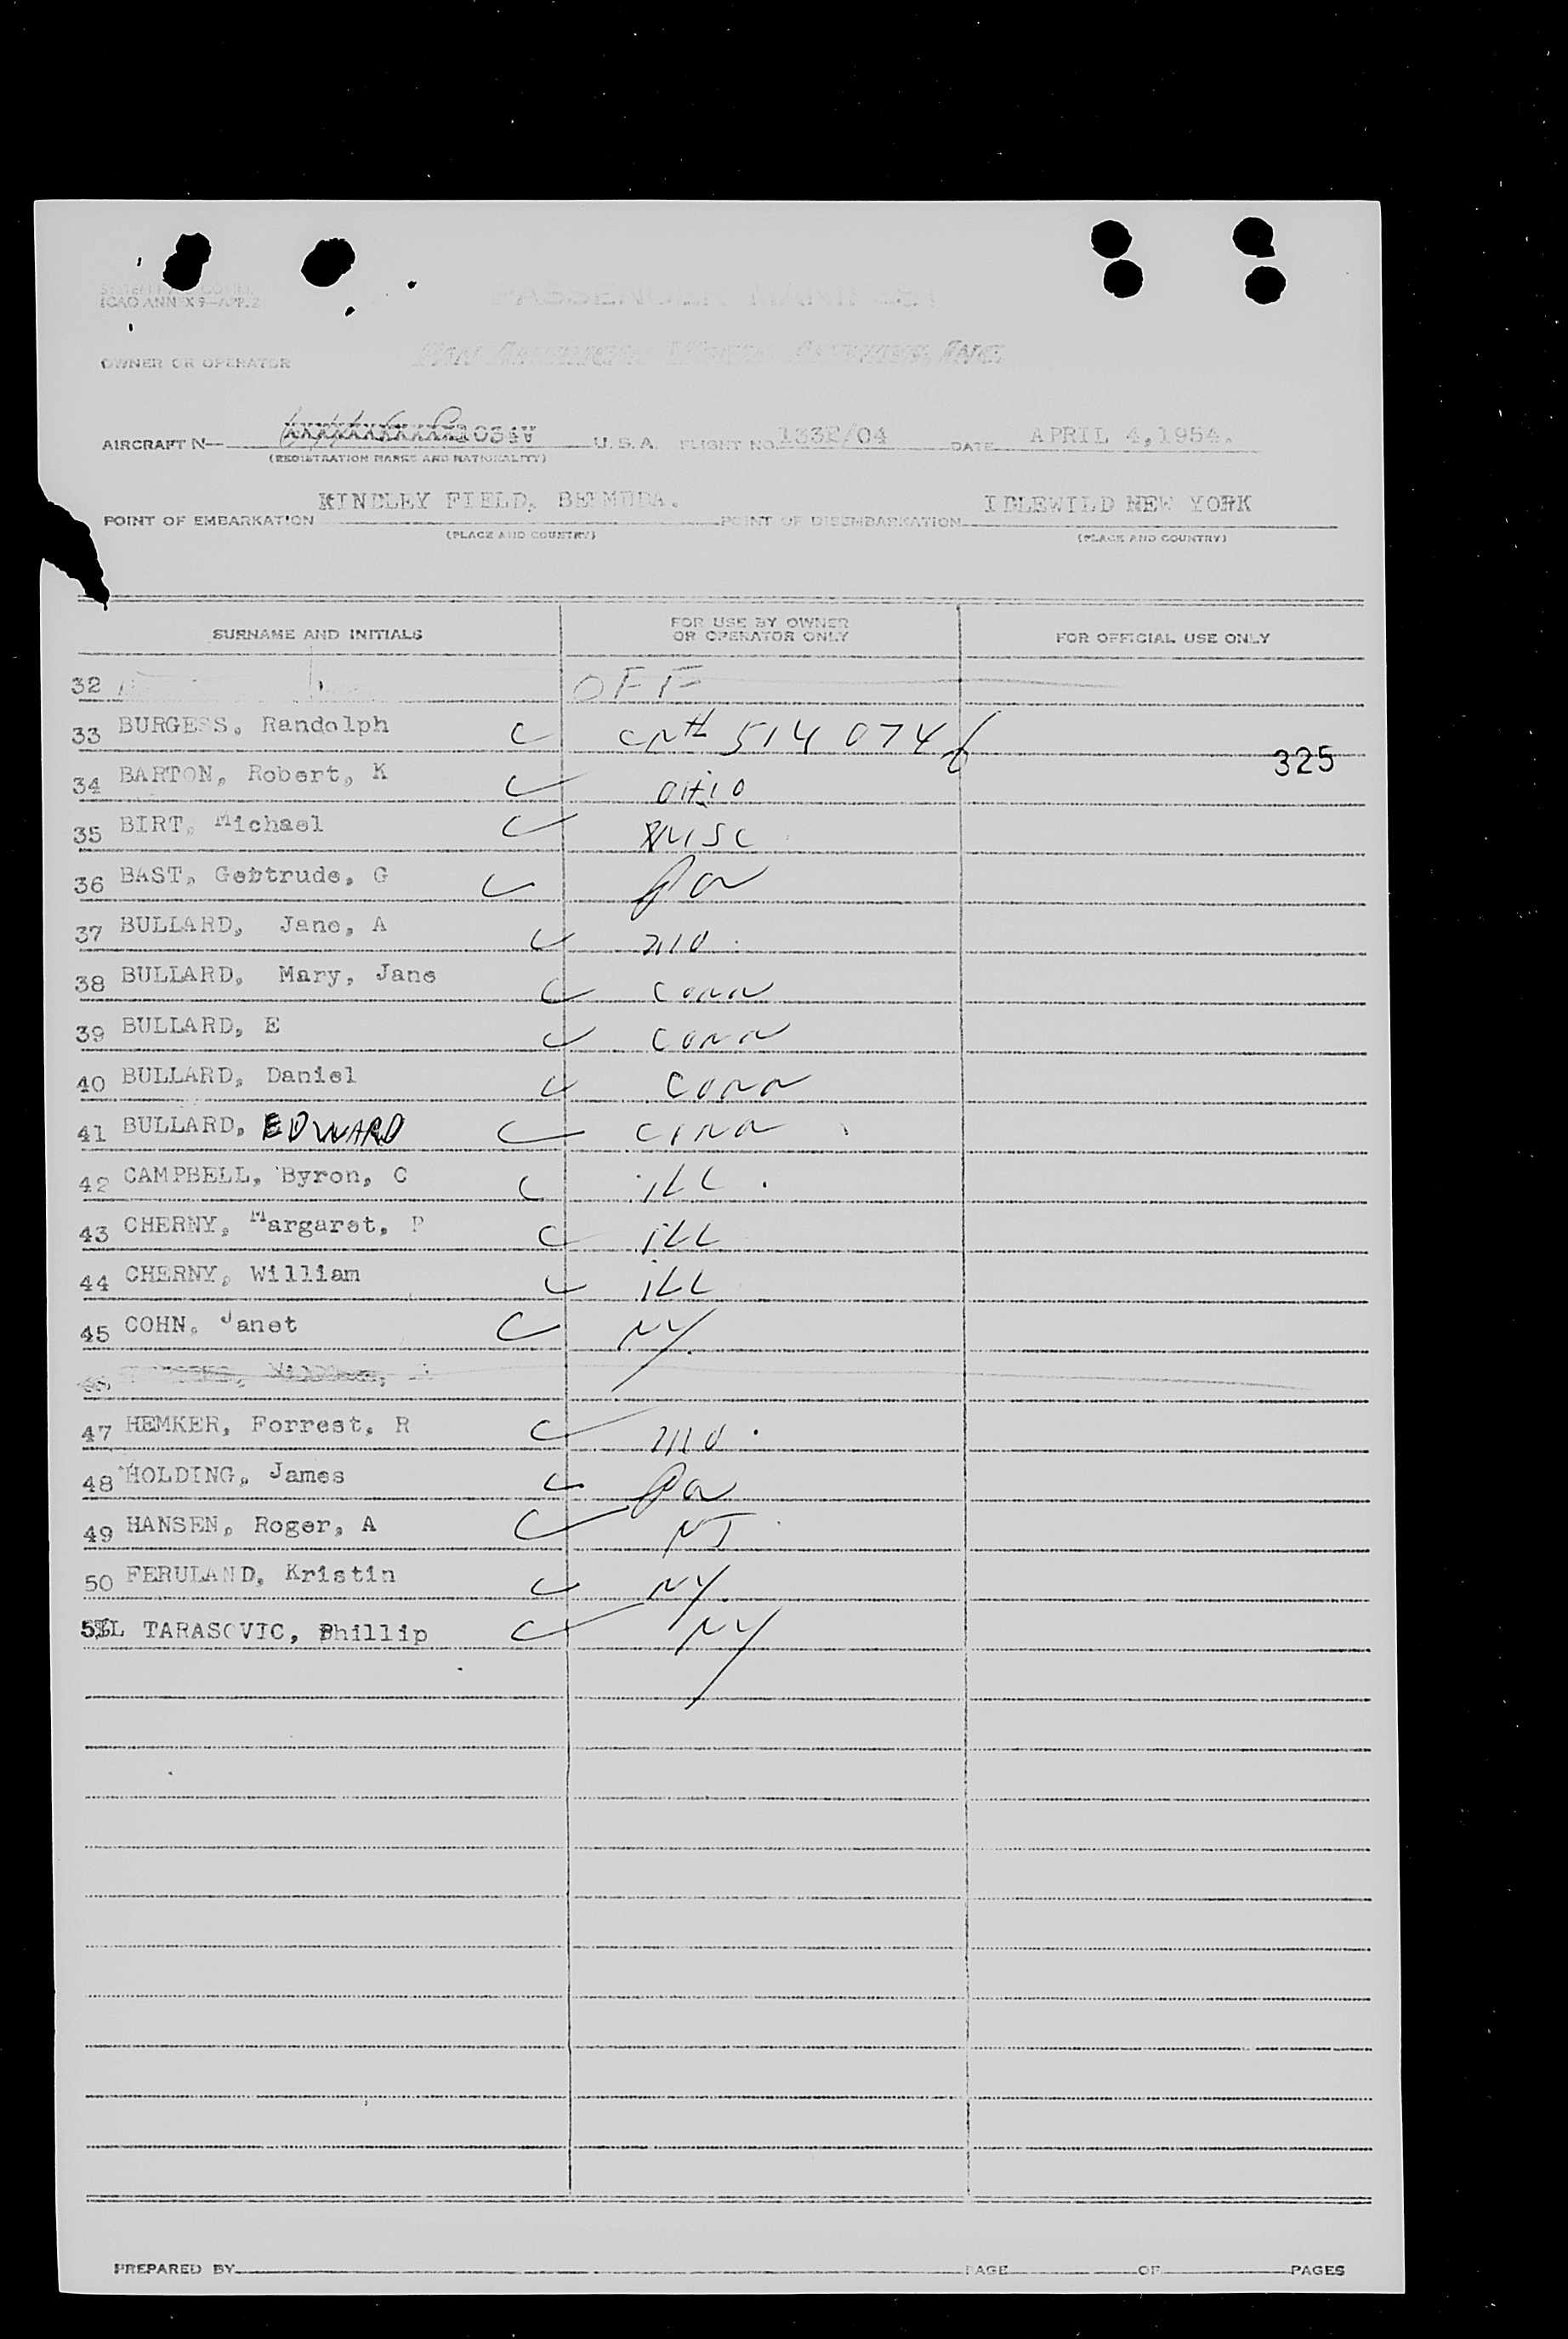 ICAO ANNEX 9—APP. 2
PASSENGER MANIFEST
OWNER OR OPERATOR PAN AMERICAN WORLD AIRWAYS, INC.
AIRCRAFT N— 1034V U. S. A. FLIGHT NO. 133E/04 DATE APRIL 4,1954.
(REGISTRATION MARKS AND NATIONALITY)
POINT OF EMBARKATION KINDLEY FIELD, BERMUDA. POINT OF DISEMBARKATION IDLEWILD NEW YORK
(PLACE AND COUNTRY) (PLACE AND COUNTRY)
SURNAME AND INITIALS FOR USE BY OWNER OR OPERATOR ONLY FOR OFFICIAL USE ONLY
32 OFF
33 BURGESS, Randolph 514 0746
325
34 BARTON, Robert, K OHIO
35 BIRT, Michael
36 BAST, Gebtrude, G Pa
37 BULLARD, Jane, A MO.
38 BULLARD, Mary, Jane CONN
39 BULLARD, E CONN
40 BULLARD, Daniel CONN
41 BULLARD, EDWARD CONN
42 CAMPBELL, Byron, C ILL.
43 CHERNY, Margaret, P ILL
44 CHERNY, William ILL
45 COHN, Janet NY
47 HEMKER, Forrest, R MO.
48 HOLDING, James Pa
49 HANSEN, Roger, A NJ
50 FERULAND, Kristin NY
TARASOVIC, Phillip NY
PREPARED BY PAGE OF PAGES